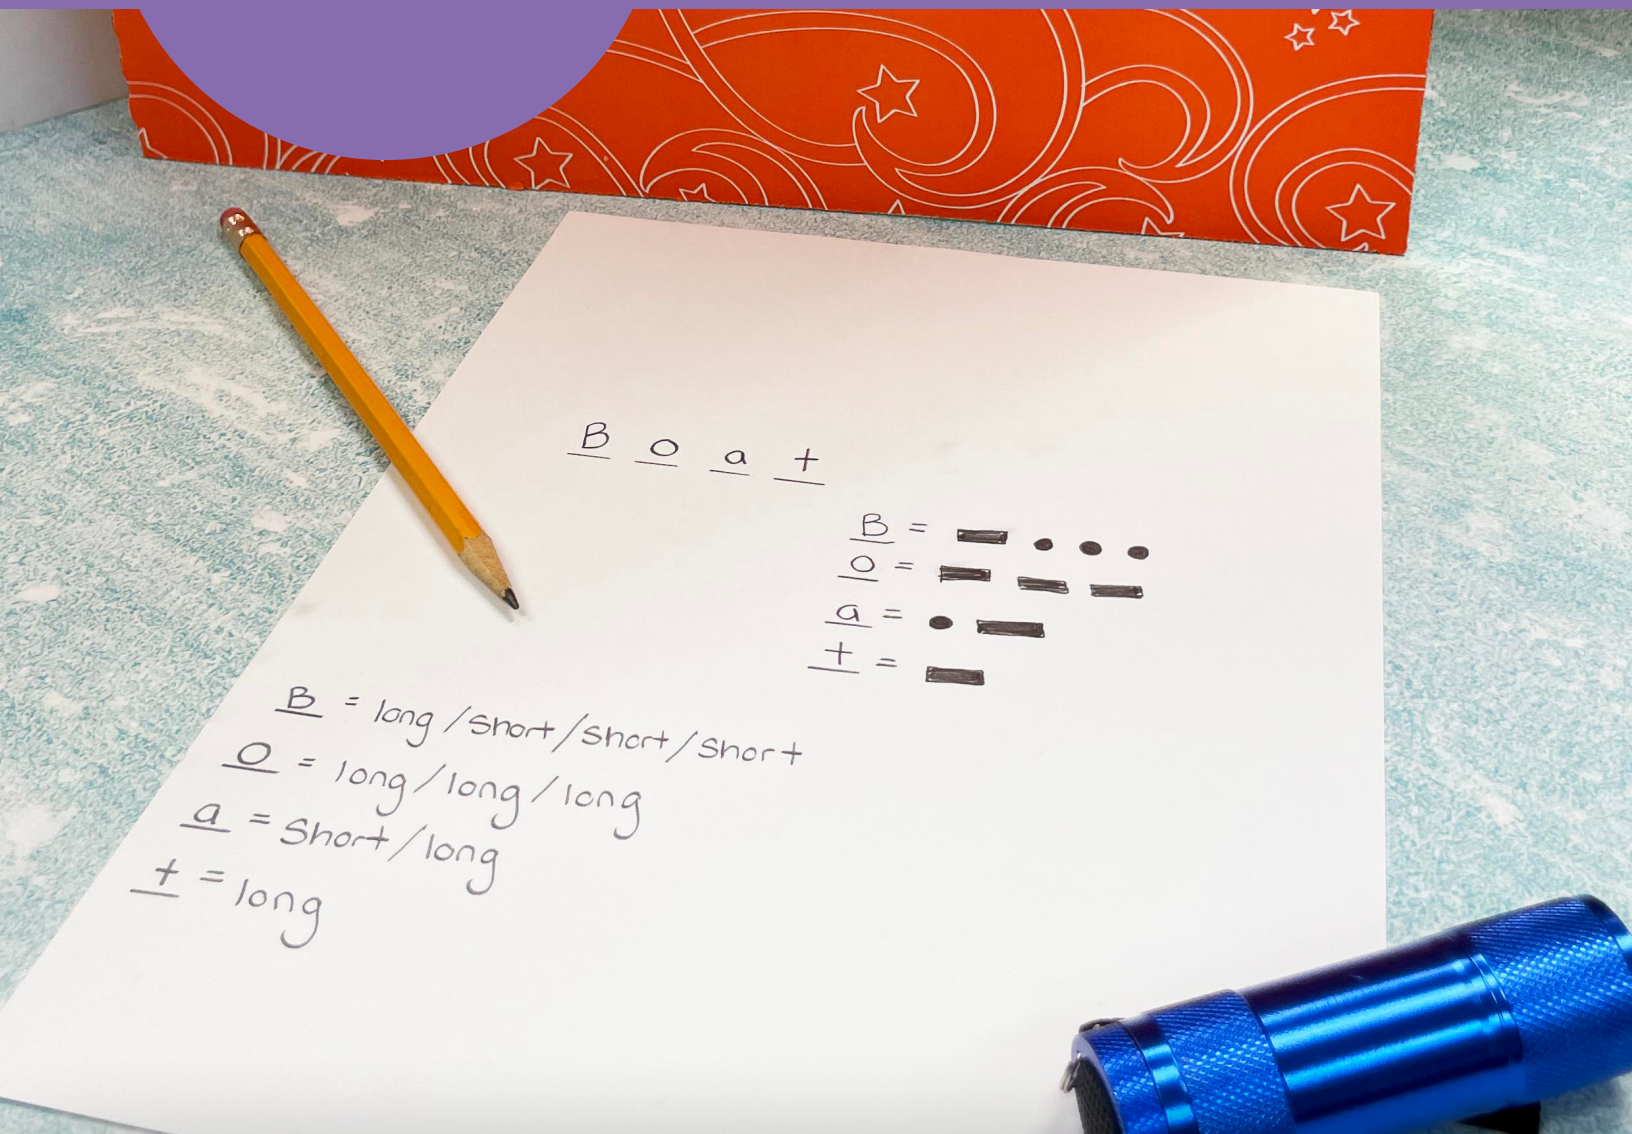 B o a t
B = — • • •
o = — — —
a = • —
t = —
B = long/short/short/short
o = long/long/long
a = short/long
t = long